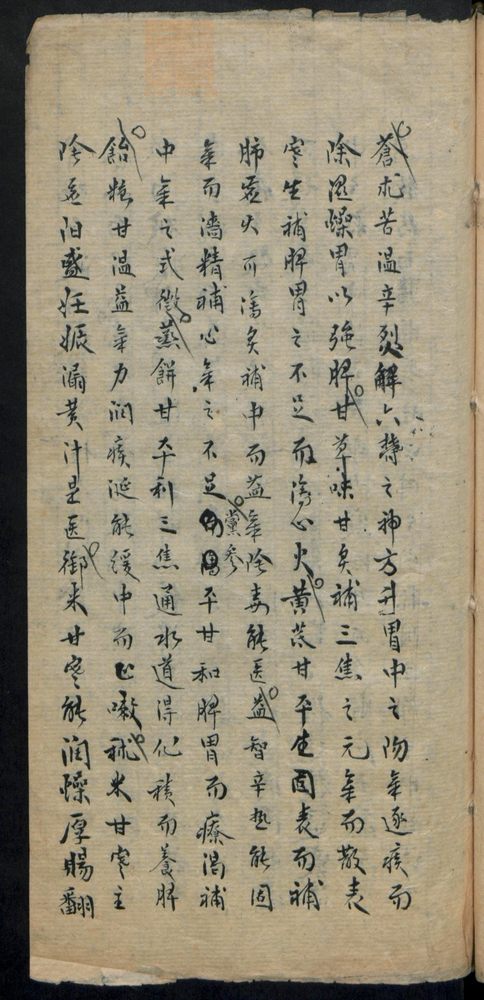 蒼朮苦溫辛烈解六欝之神方升胃中之陽氣逐痰而
除濕燥胃以強脾甘草味甘炙補三焦之元氣而散表
寒生補脾胃之不足而瀉心火黃茋甘平生固表而補
肺虛火而瀉炙補中而益氣陰毒能医益智辛熱能固
氣而濇精補心氣之不足黨參平甘和脾胃而療渴補
中氣之式微蒸餅甘平利三焦通水道得化積而養脾
飴糖甘溫益氣力润痰涎能緩中而止嗽秫米甘寒主
陰虛阳盛妊娠漏黃汁是医御米甘寒能润燥厚腸翻